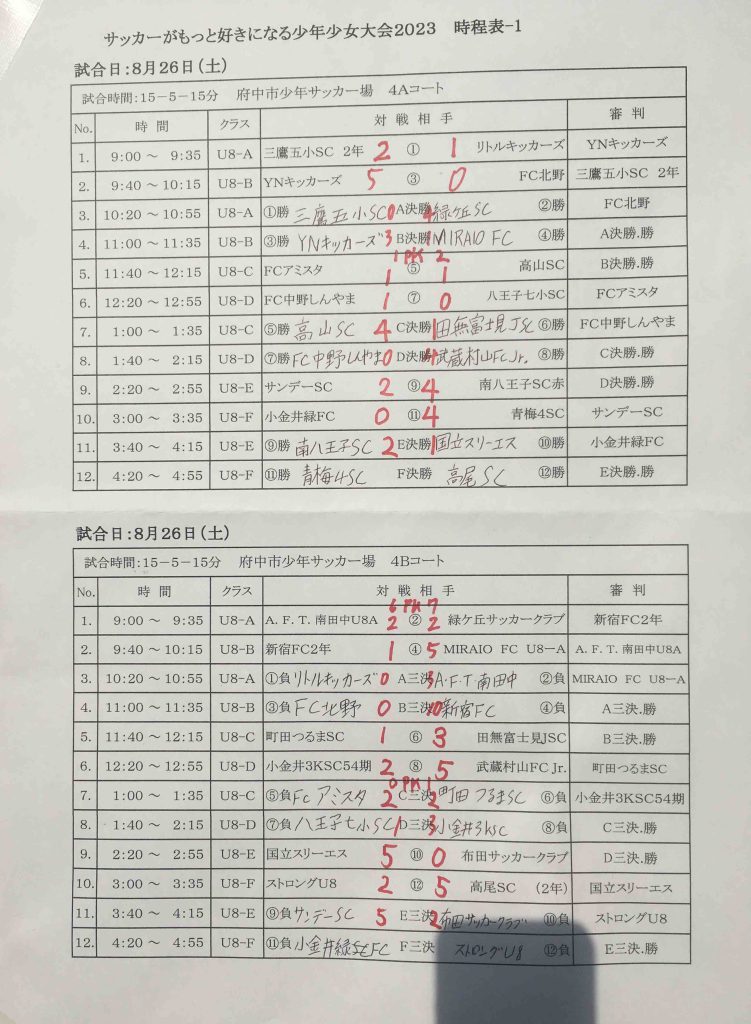 サッカーがもっと好きになる少年少女大会2023 時程表-1
試合日:8月26日(土)
試合時間:15-5-15分 府中市少年サッカー場 4Aコート
No. 時間 クラス 対戦相手 審判
1. 9:00～ 9:35 U8-A 三鷹五小SC 2年 2 ① 1 リトルキッカーズ YNキッカーズ
2. 9:40～10:15 U8-B YNキッカーズ 5 ③ 0 FC北野 三鷹五小SC 2年
3. 10:20～10:55 U8-A ①勝 三鷹五小SC 0 A決勝 4 緑ケ丘SC ②勝 FC北野
4. 11:00～11:35 U8-B ③勝 YNキッカーズ 3 B決勝 1 MIRAIO FC ④勝 A決勝.勝
1 PK 2
5. 11:40～12:15 U8-C FCアミスタ 1 ⑤ 1 高山SC B決勝.勝
6. 12:20～12:55 U8-D FC中野しんやま 1 ⑦ 0 八王子七小SC FCアミスタ
7. 1:00～ 1:35 U8-C ⑤勝 高山SC 4 C決勝 1 田無富士見JSC ⑥勝 FC中野しんやま
8. 1:40～ 2:15 U8-D ⑦勝 FC中野しんやま 0 D決勝 4 武蔵村山FC Jr. ⑧勝 C決勝.勝
9. 2:20～ 2:55 U8-E サンデーSC 2 ⑨ 4 南八王子SC赤 D決勝.勝
10. 3:00～ 3:35 U8-F 小金井緑FC 0 ⑪ 4 青梅4SC サンデーSC
11. 3:40～ 4:15 U8-E ⑨勝 南八王子SC 2 E決勝 1 国立スリーエス ⑩勝 小金井緑FC
12. 4:20～ 4:55 U8-F ⑪勝 青梅4SC F決勝 高尾SC ⑫勝 E決勝.勝
試合日:8月26日(土)
試合時間:15-5-15分 府中市少年サッカー場 4Bコート
No. 時間 クラス 対戦相手 審判
6 PK 7
1. 9:00～ 9:35 U8-A A.F.T.南田中U8A 2 ② 2 緑ケ丘サッカークラブ 新宿FC2年
2. 9:40～10:15 U8-B 新宿FC2年 1 ④ 5 MIRAIO FC U8ーA A.F.T.南田中U8A
3. 10:20～10:55 U8-A ①負 リトルキッカーズ 0 A三決 3 A.F.T.南田中 ②負 MIRAIO FC U8ーA
4. 11:00～11:35 U8-B ③負 FC北野 0 B三決 10 新宿FC ④負 A三決.勝
5. 11:40～12:15 U8-C 町田つるまSC 1 ⑥ 3 田無富士見JSC B三決.勝
6. 12:20～12:55 U8-D 小金井3KSC54期 2 ⑧ 5 武蔵村山FC Jr. 町田つるまSC
0 PK 1
7. 1:00～ 1:35 U8-C ⑤負 Fc アミスタ 2 C三決 2 町田つるまSC ⑥負 小金井3KSC54期
8. 1:40～ 2:15 U8-D ⑦負 八王子七小SC 1 D三決 3 小金井3KSC ⑧負 C三決.勝
9. 2:20～ 2:55 U8-E 国立スリーエス 5 ⑩ 0 布田サッカークラブ D三決.勝
10. 3:00～ 3:35 U8-F ストロングU8 2 ⑫ 5 高尾SC (2年) 国立スリーエス
11. 3:40～ 4:15 U8-E ⑨負 サンデーSC 5 E三決 2 布田サッカークラブ ⑩負 ストロングU8
12. 4:20～ 4:55 U8-F ⑪負 小金井緑FC F三決 ストロングU8 ⑫負 E三決.勝